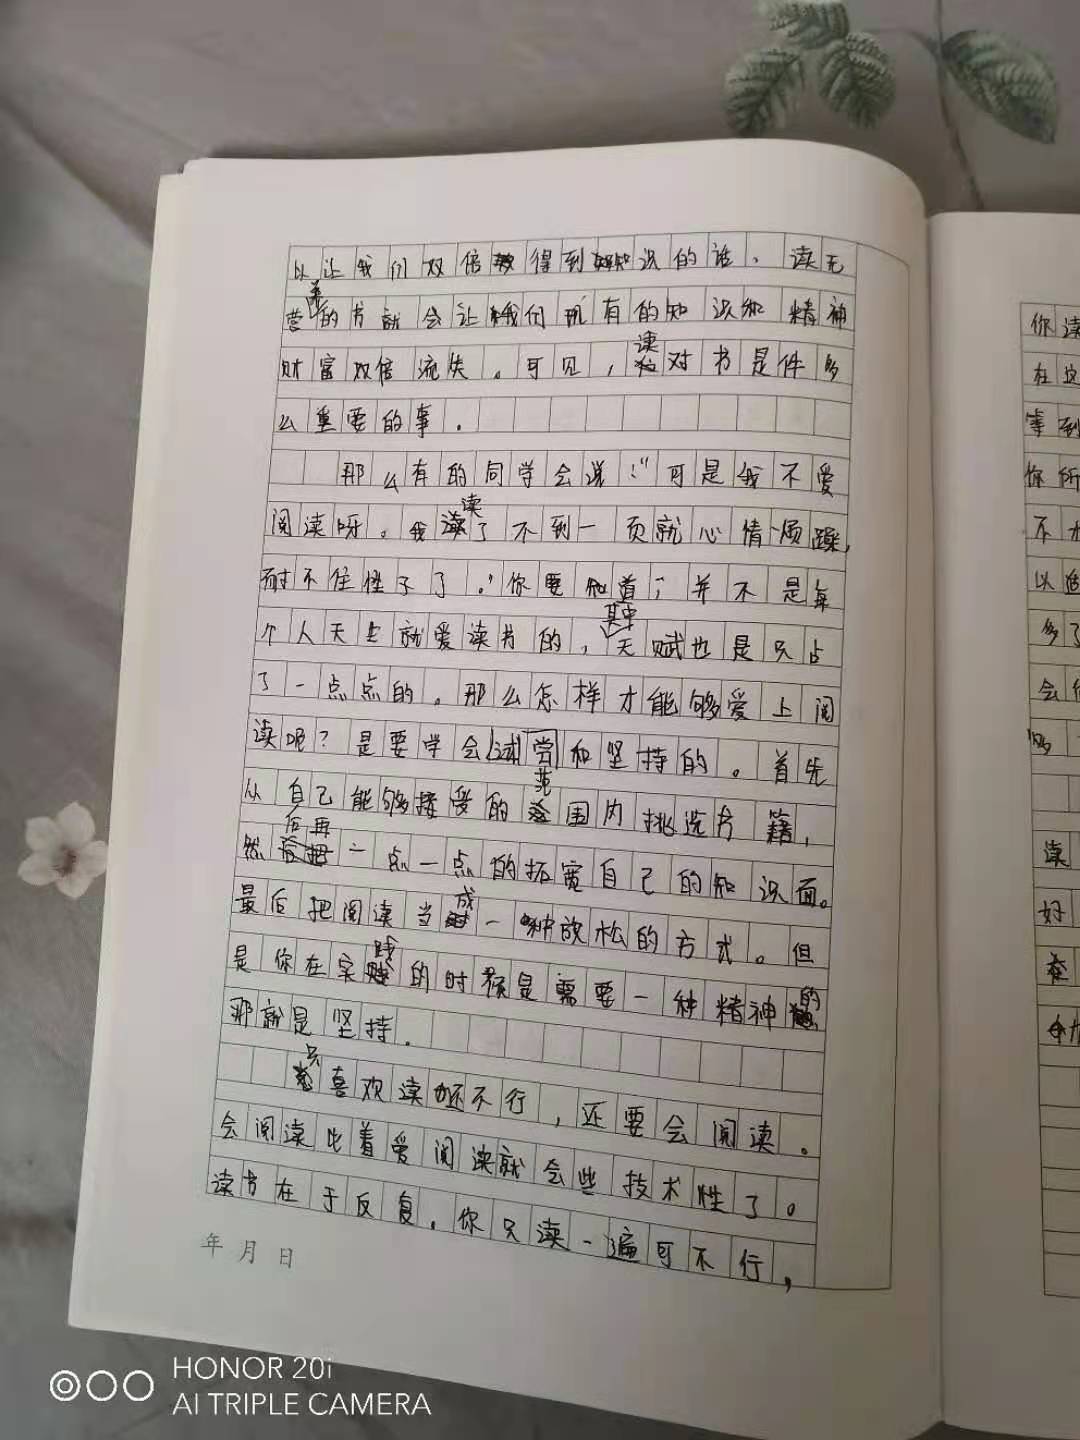 以让我们双倍得到知识的谁、读无
营养的书就会让我们所有的知识和精神
财富双倍流失。可见，读对书是件多
么重要的事.
那么有的同学会说："可是我不爱
阅读呀。我读了不到一页就心情烦躁,
耐不住性子了。"你要知道；并不是每
个人天生就爱读书的,其中天赋也是只占
了一点点的。那么怎样才能够爱上阅
读呢？是要学会试尝和坚持的。首先
从自己能够接受的范围内挑选书籍，
然后再一点一点的拓宽自己的知识面。
最后把阅读当成一种放松的方式。但
是你在实践的时候是需要一种精神的
那就是坚持.
只喜欢读还不行，还要会阅读。
会阅读比着爱阅读就会些技术性了。
读书在于反复，你只读一遍可不行，
年月日
你读
在这
等到
你所
不
以
多了
会
够
读
好
HONOR 20i
AI TRIPLE CAMERA